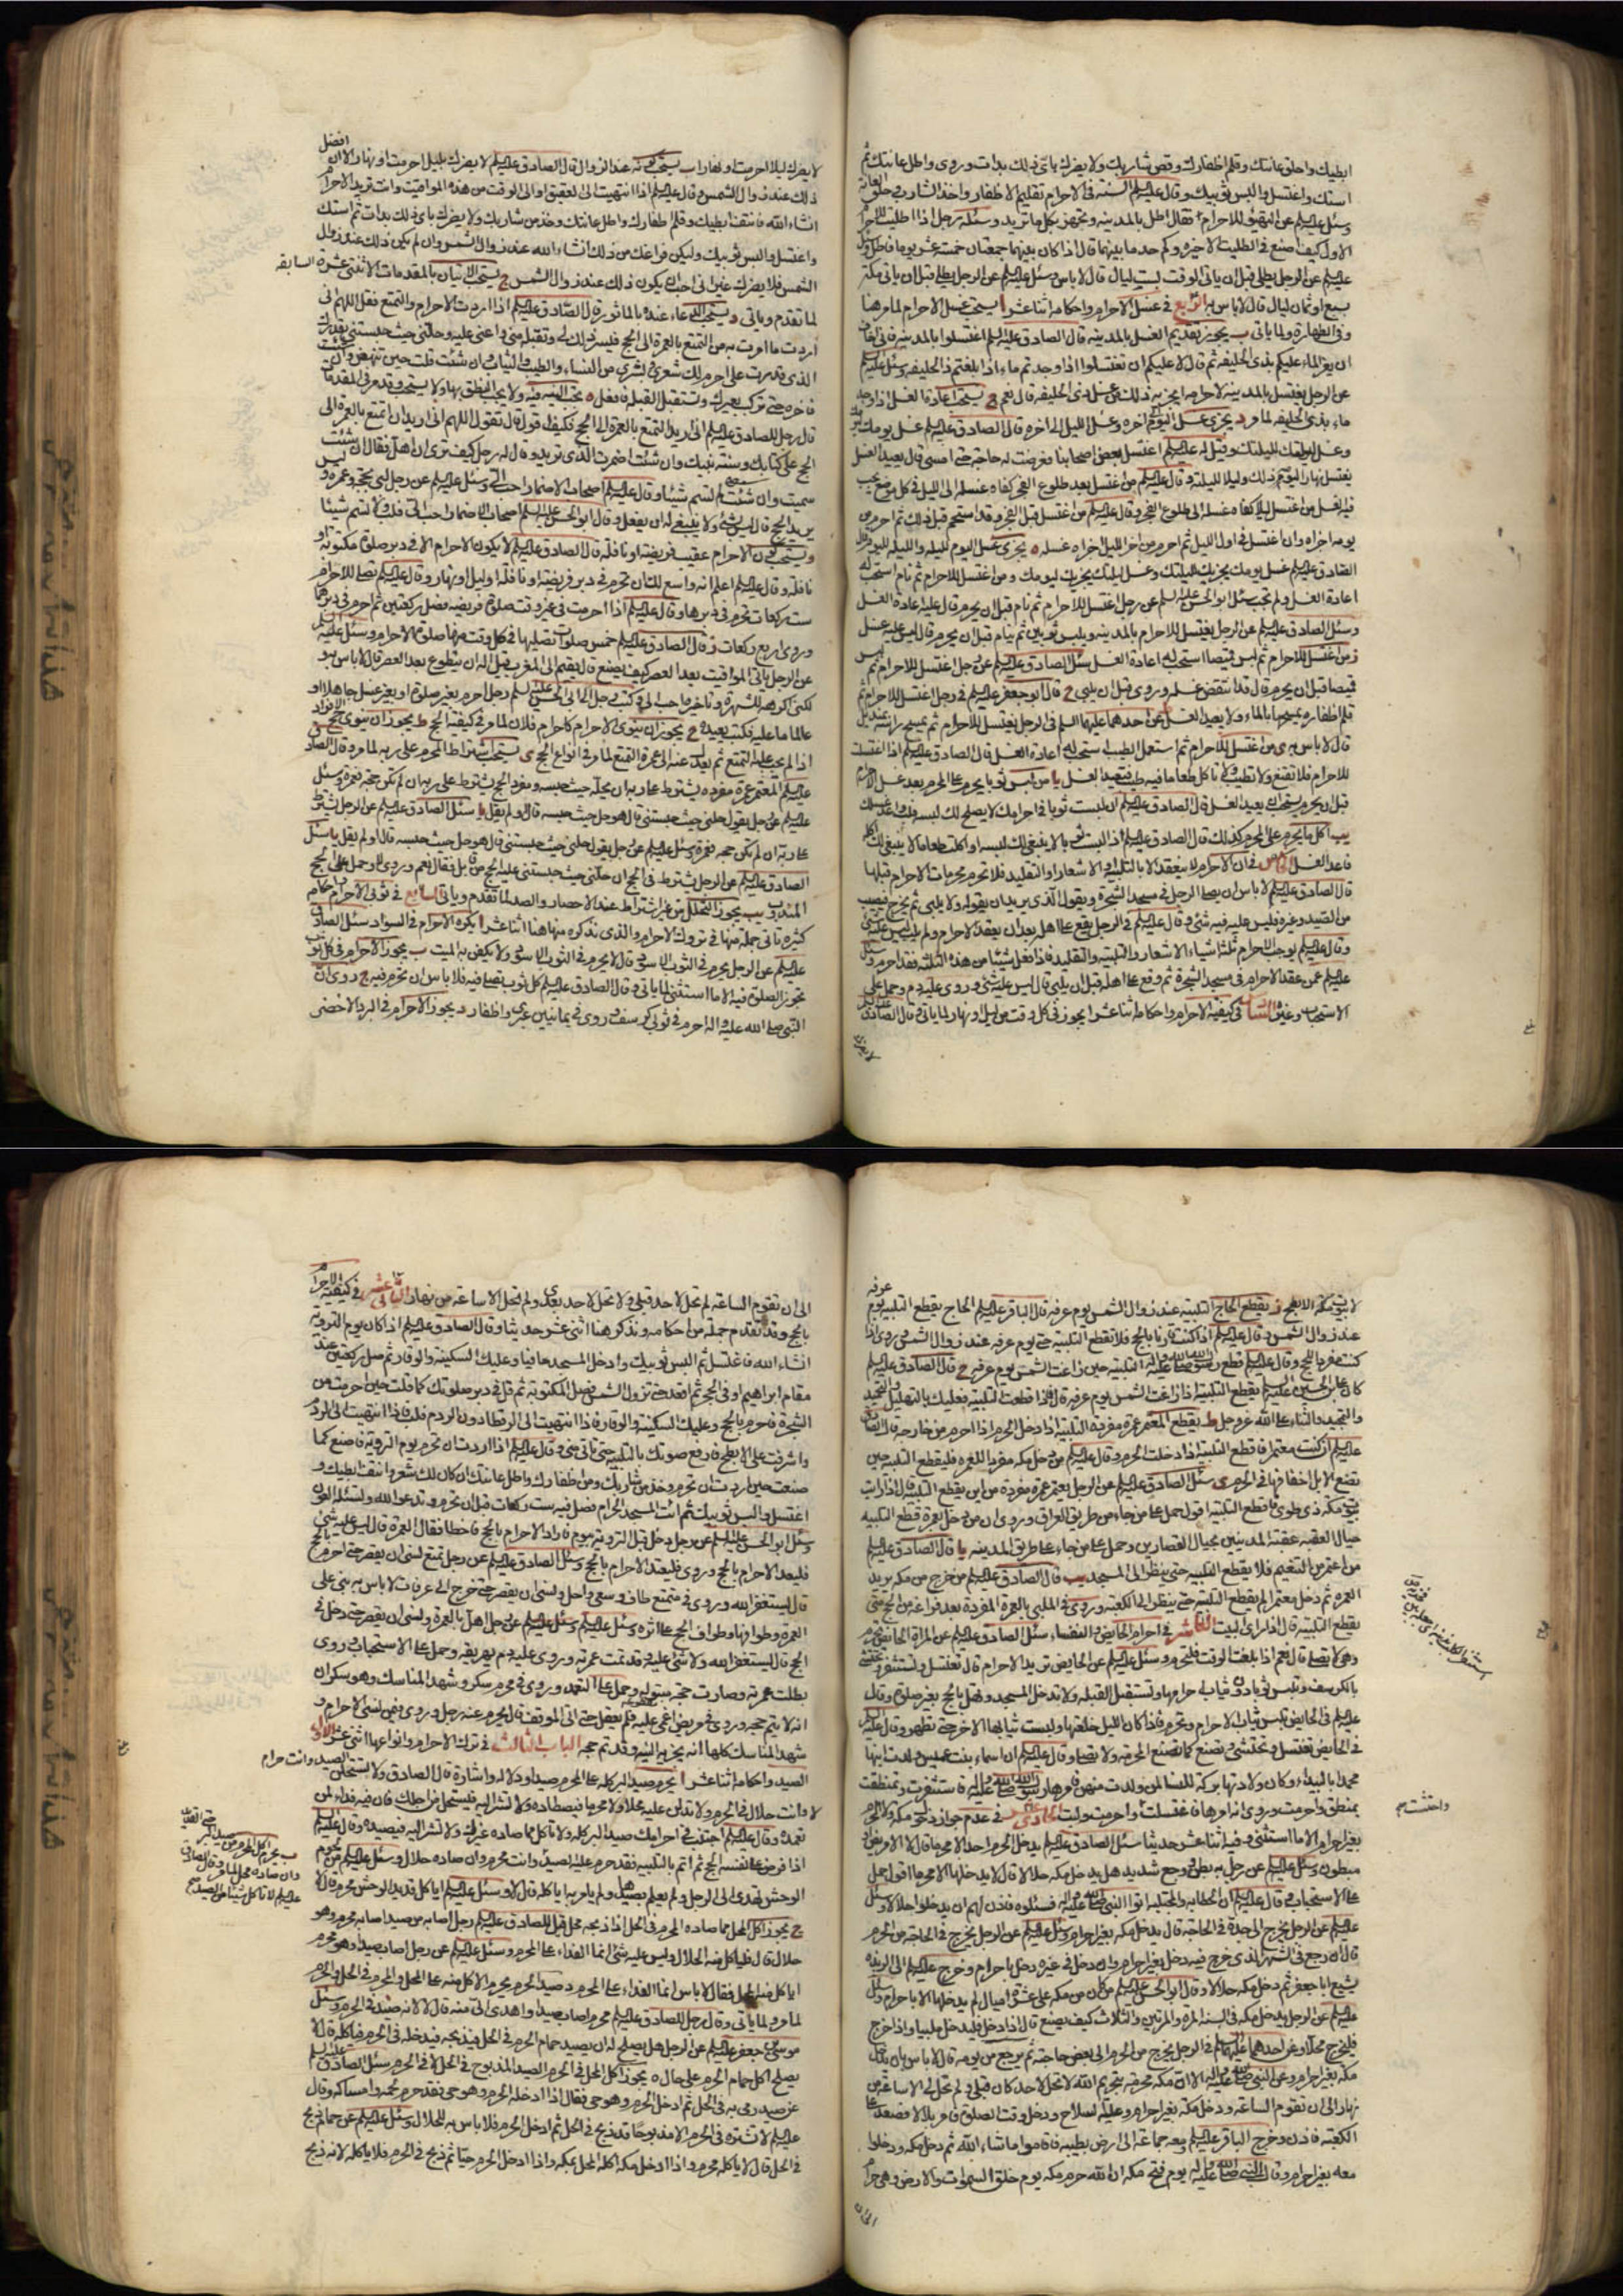 ابطيك واحلق عانتك وقلم اظفارك وقص شاربك ولا يضرك باى ذلك بدات وروى واطل عانتك ثم
استك واغتسل والبس ثوبيك وقال عليه السلم السنة فى الاحرام تقليم الاظفار واخذ الشارب وحلق العانة
وسئل عليه السلم عن التهيؤ للاحرام فقال اطل بالمدينه وتجهز بكل ما تريد وسئله رجل اذا اطليت للاحرام
الاول كيف اصنع فى الطلية الاخيرة وكم حد ما بينهما قال اذا كان بينهما جمعتان خمسة عشر يوما فاطل وسئل
عليه السلم عن الرجل يطلى قبل ان ياتى الوقت بست ليال قال لا باس وسئل عليه السلم عن الرجل يطلى قبل ان ياتى مكة
بسبع او ثمان ليال قال لا باس به الرابع فى غسل الاحرام واحكامه اثنا عشر ا يستحب غسل الاحرام لما مر هنا
وفى الطهارة ولما ياتى ب يجوز تقديم الغسل بالمدينه قال الصادق عليه السلم اغتسلوا بالمدينه فانى اخاف
ان يعز الماء عليكم بذى الحليفه ثم قال لا عليكم ان تغتسلوا اذا وجدتم ماء اذا بلغتم ذا الحليفه وسئل عليه السلم
عن الرجل يغتسل بالمدينه لاحرامه ايجزيه ذلك عن غسل ذى الحليفة قال نعم ج يستحب اعادة الغسل اذا وجد
ماء بذى الحليفه لما مر د يجزى غسل اليوم الى اخره وغسل الليل الى اخره قال الصادق عليه السلم غسل يومك ليومك
وغسل ليلتك لليلتك وقيل له عليه السلم اغتسل بعض اصحابنا فعرضت له حاجة حتى امسى قال يعيد الغسل
يغتسل نهارا ليومه ذلك وليلا لليلته وقال عليه السلم من اغتسل بعد طلوع الفجر كفاه غسله الى الليل فى كل موضع يجب
فيه الغسل ومن اغتسل ليلا كفاه غسله الى طلوع الفجر وقال عليه السلم من اغتسل قبل الفجر وقد استحم قبل ذلك ثم احرم من
يومه اجزاه وان اغتسل فى اول الليل ثم احرم من اخر الليل اجزاه غسله ه يجزى غسل اليوم لليله والليله لليوم وقال
الصادق عليه السلم غسل يومك يجزيك لليلتك وغسل ليلتك يجزيك ليومك و من اغتسل للاحرام ثم نام استحب له
اعادة الغسل ولم تجب سئل ابو الحسن عليه السلم عن رجل اغتسل للاحرام ثم نام قبل ان يحرم قال عليه اعادة الغسل
وسئل الصادق عليه السلم عن الرجل يغتسل للاحرام بالمدينه ويلبس ثوبين ثم ينام قبل ان يحرم قال ليس عليه غسل
ز من اغتسل للاحرام ثم لبس قميصا استحب له اعادة الغسل سئل الصادق عليه السلم عن رجل اغتسل للاحرام ثم لبس
قميصا قبل ان يحرم قال قد انتقض غسله وروى قبل ان يلبى ح قال ابو جعفر عليه السلم فى رجل اغتسل للاحرام ثم
قلم اظفاره يمسحها بالماء ولا يعيد الغسل ط عن احدهما عليهما السلم فى الرجل يغتسل للاحرام ثم يمسح راسه بمنديل
قال لا باس به ى من اغتسل للاحرام ثم استعمل الطيب استحب له اعادة الغسل قال الصادق عليه السلم اذا اغتسلت
للاحرام فلا تقنع ولا تطيب ولا تاكل طعاما فيه طيب فتعيد الغسل يا من لبس ثوبا يحرم على المحرم بعد غسل الاحرام
قبل ان يحرم يستحب له يعيد الغسل قال الصادق عليه السلم ان لبست ثوبا فى احرامك لا يصلح لك لبسه فلب واعد غسلك
يب اكل ما يحرم على المحرم كذلك قال الصادق عليه السلم اذا لبست ثوبا لا ينبغى لك لبسه او اكلت طعاما لا ينبغى لك اكله
فاعد الغسل الخامس فى ان الاحرام لا ينعقد الا بالتلبية او الاشعار او التقليد فلا تحرم محرمات الاحرام قبلها
قال الصادق عليه السلم لا باس ان يصلى الرجل فى مسجد الشجرة ويقول الذى يريد ان يقوله ولا يلبى ثم يخرج فيصيب
من الصيد وغيره فليس عليه فيه شئ وقال عليه السلم فى الرجل يقع على اهله بعد ان يعقد الاحرام ولم يلب ليس عليه شئ
وقال عليه السلم يوجب الاحرام ثلثة اشياء الاشعار والتلبية والتقليد فاذا فعل شيئا من هذه الثلثه فقد احرم وسئل
عليه السلم عمن عقد الاحرام فى مسجد الشجرة ثم وقع على اهله قبل ان يلبى قال ليس عليه شئ وروى عليه دم وحمل على
الاستحباب وغيره السادس فى كيفية الاحرام واحكامه اثنا عشر ا يجوز فى كل وقت من ليل او نهار لما ياتى قال الصادق
لا يضرك
لا يضرك ليلا احرمت او نهارا ب يستحب كونه عند الزوال قال الصادق عليه السلم لا يضرك بليل احرمت او نهار الا ان افضل
ذلك عند زوال الشمس وقال عليه السلم اذا انتهيت الى العقيق او الى الوقت من هذه المواقيت وانت تريد الاحرام
انشاء الله فانتف ابطيك وقلم اظفارك واطل عانتك وخذ من شاربك ولا يضرك باى ذلك بدات ثم استك
واغتسل والبس ثوبيك وليكن فراغك من ذلك انشاء الله عند زوال الشمس وان لم يكن ذلك عند زوال
الشمس فلا يضرك غير انى احب ان يكون ذلك عند زوال الشمس ج يستحب الاتيان بالمقدمات الاثنتى عشرة السابقه
لما تقدم وياتى د يستحب الدعاء عنده بالماثور قال الصادق عليه السلم اذا اردت الاحرام والتمتع فقل اللهم انى
اريد ما امرت به من التمتع بالعمرة الى الحج فيسر ذلك لى وتقبله منى واعنى عليه وحلنى حيث حبستنى بقدرك
الذى قدرت على احرم لك شعرى وبشرى من النساء والطيب والثياب وان شئت قلت حين تنهض وان شئت
فاخره حتى تركب بعيرك وتستقبل القبلة فافعل ه تجب النية فيه ولا يجب النطق بها ولا يستحب وقد مر فى المقدمات
قال رجل للصادق عليه السلم انى اريد التمتع بالعمرة الى الحج فكيف اقول قال تقول اللهم انى اريد ان اتمتع بالعمرة الى
الحج على كتابك وسنة نبيك وان شئت اضمرت الذى تريد وقال له رجل كيف ترى ان اهل فقال ان شئت
سميت وان شئت لم تسم شيئا وقال عليه السلم اصحاب الاضمار احب الى وسئل عليه السلم عن رجل لبى بحجة وعمرة وليس
يريد الحج قال ليس بشئ ولا ينبغى له ان يفعل وقال ابو الحسن عليه السلم اصحاب الاضمار احب الى فلب ولا تسم شيئا
و يستحب كون الاحرام عقيب فريضة او نافلة قال الصادق عليه السلم لا يكون الاحرام الا فى دبر صلوة مكتوبة او
نافلة وقال عليه السلم اعلم انه واسع لك ان تحرم فى دبر فريضة او نافلة او ليل او نهار وقال عليه السلم تصلى للاحرام
ست ركعات تحرم فى دبرها وقال عليه السلم اذا احرمت فى غير وقت صلوة فريضه فصل ركعتين ثم احرم فى دبرهما
وروى اربع ركعات ز قال الصادق عليه السلم خمس صلوات تصليها فى كل وقت منها صلوة الاحرام وسئل عليه السلم
عن الرجل ياتى المواقيت بعد العصر كيف يصنع قال يقيم الى المغرب قيل له ان يتطوع بعد العصر قال لا باس به
لكنى اكرهه للشهرة وتاخيره احب الى وكتب رجل الى ابى الحسن عليه السلم رجل احرم بغير صلوة او بغير غسل جاهلا او
عالما ما عليه فكتب يعيده ح يجوز ان ينوى الاحرام كاحرام فلان لما مر فى كيفية الحج ط يجوز ان ينوى حج الافراد
اذا لم يجب عليه التمتع ثم يعدل عنه الى عمرة التمتع لما مر فى انواع الحج ى يستحب اشتراط المحرم على ربه لما مر وقال الصادق
عليه السلم المعتمر عمرة مفردة يشترط على ربه ان يحله حيث حبسه ومفرد الحج يشترط على ربه ان لم تكن حجة فعمرة وسئل
عليه السلم عن رجل يقول حلنى حيث حبستنى قال هو حل حيث حبسه قال او لم يقل يا سئل الصادق عليه السلم عن الرجل يشترط
الصادق عليه السلم عن الرجل يشترط فى الحج ان حلنى حيث حبستنى عليه الحج من قابل فقال نعم وروى لا وحمل على الحج
المندوب يب يجوز التحلل من غير اشتراط عند الاحصار والصد لما تقدم وياتى السابع فى ثوبى الاحرام واحكام
كثيرة تاتى جملة منها فى تروك الاحرام والذى نذكره منها هنا اثنا عشر ا يكره الاحرام فى السواد سئل الصادق
عليه السلم عن الرجل يحرم فى الثوب الاسود قال لا يحرم فى الثوب الاسود ولا يكفن به الميت ب يجوز الاحرام فى كل ثوب
تجوز الصلوة فيه الا ما استثنى لما ياتى وقال الصادق عليه السلم كل ثوب يصلى فيه فلا باس ان تحرم فيه ج روى ان
النبى صلى الله عليه واله احرم فى ثوبى كرسف وروى فى يمانيين عبرى واظفار د يجوز الاحرام فى البرد الاخضر
لا بيوت مكة الابطح ز يقطع الحاج التلبية عند زوال الشمس يوم عرفة قال الباقر عليه السلم الحاج يقطع التلبية يوم عرفة
عند زوال الشمس وقال عليه السلم اذا كنت قارنا بالحج فلا تقطع التلبية حتى يوم عرفة عند زوال الشمس وروى اذا
كنت مفردا للحج وقال عليه السلم قطع رسول الله صلى الله عليه واله التلبية حين زاغت الشمس يوم عرفة ح قال الصادق عليه السلم
كان على بن الحسين عليه السلم يقطع التلبية اذا زاغت الشمس يوم عرفة قال فاذا قطعت التلبية فعليك بالتهليل والتحميد
والتمجيد والثناء على الله عز وجل ط يقطع المعتمر عمرة مفردة التلبية اذا دخل الحرم اذا احرم من خارجه قال الصادق
عليه السلم ان كنت معتمرا فاقطع التلبية اذا دخلت الحرم وقال عليه السلم من دخل مكة مفردا للعمرة فليقطع التلبية حين
تضع الابل اخفافها فى الحرم ى سئل الصادق عليه السلم عن الرجل يعتمر عمرة مفردة من اين يقطع التلبية قال اذا رايت
بيوت مكة ذى طوى فاقطع التلبية اقول حمل على من جاء من طريق العراق وروى ان من دخل بعمرة قطع التلبية
حيال العقبة عقبة المدنيين بحيال القصارين وحمل على من جاء على طريق المدينه يا قال الصادق عليه السلم
من اعتمر من التنعيم فلا يقطع التلبية حتى ينظر الى المسجد يب قال الصادق عليه السلم من خرج من مكة يريد
العمرة ثم دخل معتمرا لم يقطع التلبية حتى ينظر الى الكعبة وروى فى الملبى بالعمرة المفردة بعد فراغه من الحج متى
يقطع التلبية قال اذا راى البيت العاشر فى احرام الحائض والنفساء سئل الصادق عليه السلم عن المراة الحائض تحرم
وهى لا تصلى قال نعم اذا بلغت الوقت فلتحرم وسئل عليه السلم عن الحائض تريد الاحرام قال تغتسل وتستثفر وتحتشى
بالكرسف وتلبس ثوبا دون ثياب احرامها وتستقبل القبلة ولا تدخل المسجد وتهل بالحج بغير صلوة وقال
فى الحائض تغتسل وتحتشى وتصنع كما تصنع المحرمة ولا تصلى وقال عليه السلم ان اسماء بنت عميس ولدت ابنها
محمدا بالبيداء وكان ولادتها بركة للنساء لمن ولدت منهن فامرها رسول الله صلى الله عليه واله فاستثفرت وتمنطقت
بمنطق واحرمت وروى انه امرها فاغتسلت واحرمت ولبت الحادى عشر فى عدم جواز دخول مكة ولا الحرم
بغير احرام الا ما استثنى وفيه اثنا عشر حديثا سئل الصادق عليه السلم يدخل الحرم احد الا محرما قال لا الا مريض او
مبطون وسئل عليه السلم عن رجل به بطن ووجع شديد هل يدخل مكة حلالا قال لا يدخلها الا محرما اقول حمل
على الاستحباب وقال عليه السلم ان الحطابة والمجتلبة اتوا النبى صلى الله عليه واله فسئلوه فاذن لهم ان يدخلوا حلالا وسئل
عليه السلم عن الرجل يخرج الى جدة فى الحاجة قال يدخل مكة بغير احرام وسئل عليه السلم عن الرجل يخرج فى الحاجة من الحرم
قال ان رجع فى الشهر الذى خرج فيه دخل بغير احرام وان دخل فى غيره دخل باحرام وخرج عليه السلم الى الربذة
يشيع ابا جعفر ثم دخل مكة حلالا وقال ابو الحسن عليه السلم من كان من مكة على عشرة اميال لم يدخلها الا باحرام وسئل
عليه السلم عن الرجل يدخل مكة فى السنة المرة والمرتين والثلاث كيف يصنع قال اذا دخل فليدخل ملبيا واذا خرج
فليخرج محلا وعن احدهما عليهما السلم فى الرجل يخرج من الحرم الى بعض حاجته ثم يرجع من يومه قال لا باس بان يدخل
مكة بغير احرام وعن النبى صلى الله عليه واله الا ان مكة محرمة بتحريم الله لا تحل لاحد كان قبلى ولم تحل لى الا ساعة من
نهار الى ان تقوم الساعة ودخل مكة بغير احرام وعليه السلاح ودخل وقت الصلوة فامر بلالا فصعد على
الكعبة فاذن وخرج الباقر عليه السلم ومعه جماعة الى ارض بطيبة فاقاموا ما شاء الله ثم دخل مكة ودخلوا
معه بغير احرام وقال النبى صلى الله عليه واله يوم فتح مكة ان الله حرم مكة يوم خلق السموات والارض وهى حرام
الى ان
واحتشت صح
الى ان تقوم الساعة لم تحل لاحد قبلى ولا تحل لاحد بعدى ولم تحل الا ساعة من نهار الثانى عشر فى كيفية الاحرام
بالحج وقد تقدم جملة من احكامه ونذكر هنا اثنى عشر حديثا وقال الصادق عليه السلم اذا كان يوم التروية
انشاء الله فاغتسل ثم البس ثوبيك وادخل المسجد حافيا وعليك السكينة والوقار ثم صل ركعتين عند
مقام ابراهيم او فى الحجر ثم اقعد حتى تزول الشمس فصل المكتوبة ثم قل فى دبر صلوتك كما قلت حين احرمت من
الشجرة فاحرم بالحج وعليك السكينة والوقار فاذا انتهيت الى الرقطا دون الردم فلب فاذا انتهيت الى الردم
واشرفت على الابطح فارفع صوتك بالتلبية حتى تاتى منى وقال عليه السلم اذا اردت ان تحرم يوم التروية فاصنع كما
صنعت حين اردت ان تحرم وخذ من شاربك ومن اظفارك واطل عانتك ان كان لك شعر وانتف ابطيك و
اغتسل والبس ثوبيك ثم ائت المسجد الحرام فصل فيه ست ركعات قبل ان تحرم وتدعو الله وتسئله العون
وسئل ابو الحسن عليه السلم عن رجل دخل قبل التروية بيوم فاراد الاحرام بالحج فاخطا فقال العمرة قال ليس عليه شئ
فليعد الاحرام بالحج وروى فليعقد الاحرام بالحج وسئل الصادق عليه السلم عن رجل تمتع نسى ان يقصر حتى احرم بالحج
قال يستغفر الله وروى فى متمتع طاف وسعى واحل ونسى ان يقصر حتى خرج الى عرفات لا باس به يبنى على
العمرة وطوافها وطواف الحج على اثره وسئل عليه السلم عن رجل اهل بالعمرة ونسى ان يقصر حتى دخل فى
الحج قال يستغفر الله ولا شئ عليه وقد تمت عمرته وروى عليه دم يهريقه وحمل على الاستحباب وروى
بطلت عمرته وصارت حجة مبتولة وحمل على التعمد وروى فى محرم سكر وشهد المناسك وهو سكران
انه لا يتم حجه وروى فى مريض اغمى عليه فلم يعقل حتى اتى الموقف قال يحرم عنه رجل وروى فيمن نسى الاحرام و
شهد المناسك كلها انه يجزيه النية وقد تم حجه الباب الثالث فى ترك الاحرام وانواعها اثنى عشر الاول
الصيد واحكامه اثنا عشر ا يحرم صيد البر كله على المحرم صيدا ودلالة واشارة قال الصادق ولا يستحلن الصيد وانت حرام
ولا وانت حلال فى الحرم ولا تدلن عليه محلا ولا محرما فيصطاده ولا تشر اليه فيستحل من اجلك فان فيه فداء لمن
تعمده وقال عليه السلم اجتنب فى احرامك صيد البر كله ولا تاكل مما صاده غيرك ولا تشر اليه فيصيده وقال عليه السلم
اذا فرض على نفسه الحج ثم اتم بالتلبية فقد حرم عليه الصيد وانت محرم وان صاده حلال وسئل عليه السلم عن لحوم
الوحش تهدى الى الرجل ولم يعلم بصيدها ولم يامر به اياكله قال لا وسئل عليه السلم اياكل قديد الوحش محرم قال لا
ج يجوز اكل المحل مما صاده المحرم فى الحل اذا ذبحه محل قيل للصادق عليه السلم رجل اصاب من صيد اصابه محرم وهو
حلال قال فلياكل منه الحلال وليس عليه شئ انما الفداء على المحرم وسئل عليه السلم عن رجل اصاب صيدا وهو محرم
اياكل منه المحل فقال لا باس انما الفداء على المحرم د صيد الحرم محرم الاكل منه على المحل والمحرم فى الحل والحرم
لما مر ولما ياتى وقال رجل للصادق عليه السلم محرم اصاب صيدا واهدى الى منه قال لا لانه صيد فى الحرم وسئل
موسى بن جعفر عليه السلم عن الرجل هل يصلح له ان يصيد حمام الحرم فى الحل فيذبحه فيدخله فى الحرم فياكله قال لا
يصلح اكل حمام الحرم على حال ه يجوز اكل المحل فى الحرم الصيد المذبوح فى الحل لا فى الحرم سئل الصادق عليه السلم
عن صيد رمى به فى الحل ثم ادخل الحرم وهو حى فقال اذا ادخله الحرم وهو حى فقد حرم لحمه وامساكه وقال
عليه السلم لا تشتره فى الحرم الا مذبوحا قد ذبح فى الحل ثم ادخل الحرم فلا باس به للحلال وسئل عليه السلم عن حمام ذبح
فى الحل قال لا ياكله محرم واذا ادخل مكة اكله المحل بمكة واذا ادخل الحرم حيا ثم ذبح فى الحرم فلا ياكله لانه ذبح